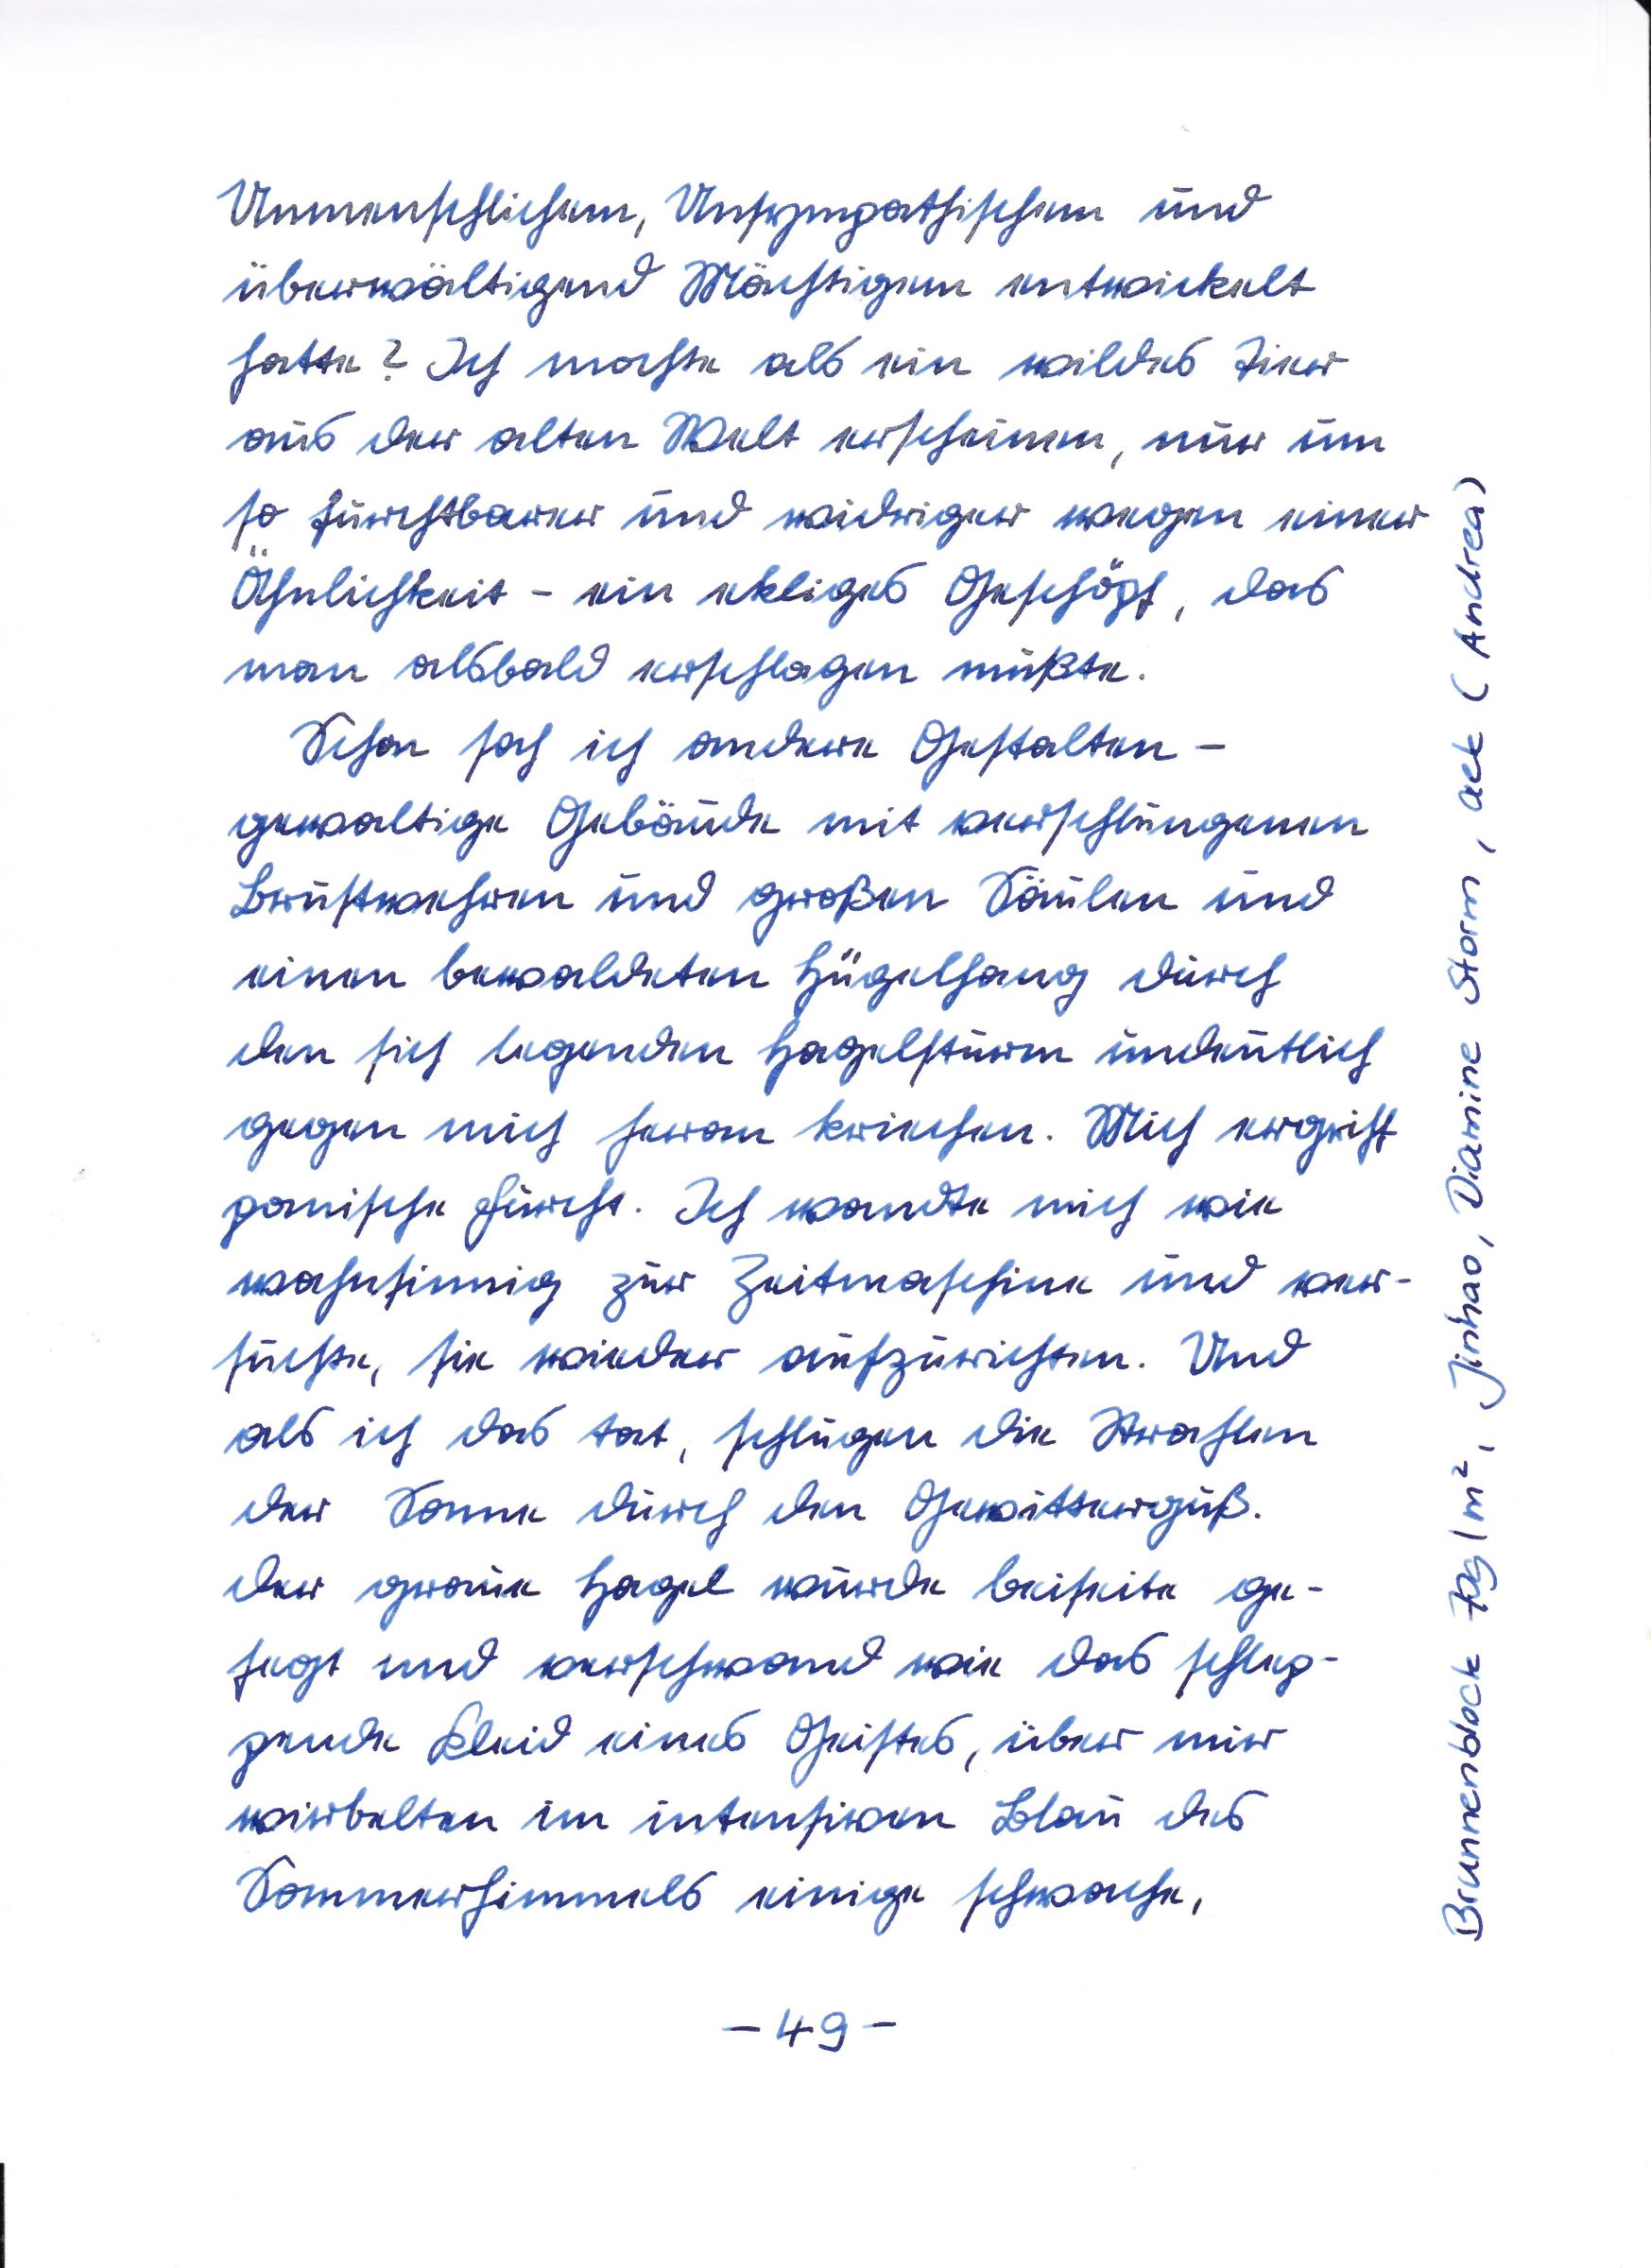 Unmenschlichem, Unsympathischem und
überwältigend Mächtigem entwickelt
hatte? Ich mochte als ein wildes Tier
aus der alten Welt erscheinen, nur um
so furchtbarer und widriger wegen einer
Ähnlichkeit – ein ekliges Geschöpf, das
man alsbald erschlagen müßte.
Schon sah ich andere Gestalten –
gewaltige Gebäude mit verschlungenen
Brustwehren und großen Säulen und
einen bewaldeten Hügelhang durch
den sich legenden Hagelsturm undeutlich
gegen mich heran kriechen. Mich ergriff
panische Furcht. Ich wandte mich wie
wahnsinnig zur Zeitmaschine und ver-
suchte, sie wieder aufzurichten. Und
als ich das tat, schlugen die Strahlen
der Sonne durch den Gewitterguß.
Der graue Hagel wurde beiseite ge-
fegt und verschwand wie das schlep-
pende Kleid eines Geistes, über mir
wirbelten im intensiven Blau des
Sommerhimmels einige schwache,
– 49 –
Brunnenblock 70g/m², Jinhao, Diamine Storm, aek (Andrea)